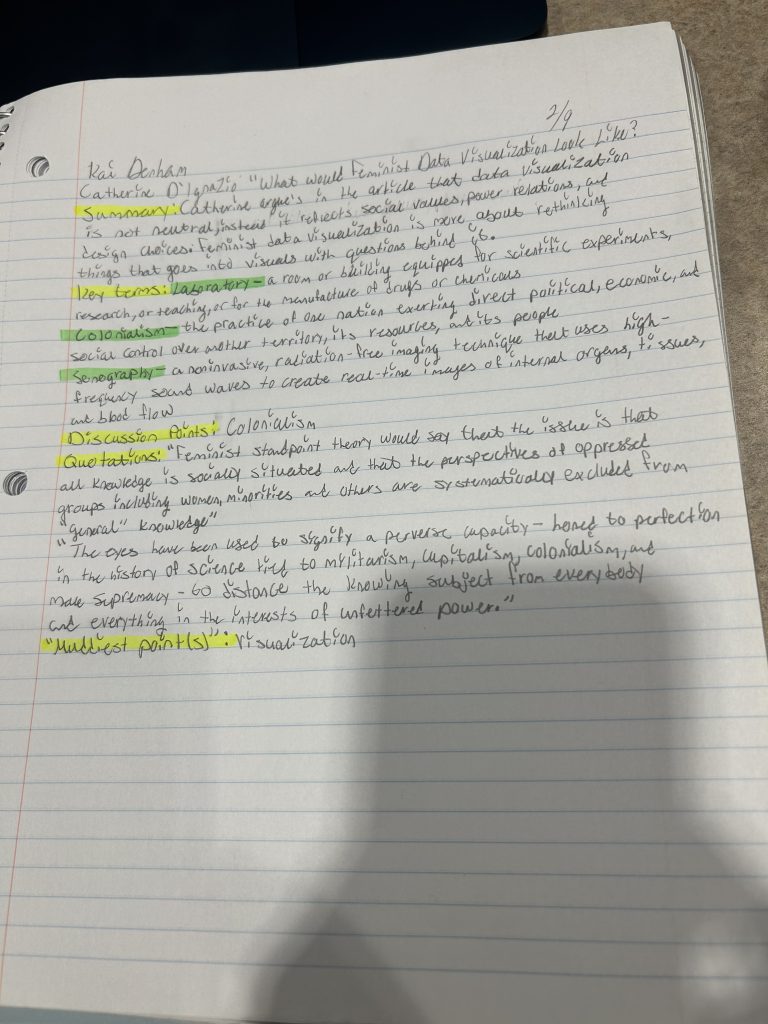 2/9
Kai Denham
Catherine D'Ignazio "What would Feminist Data Visualization Look Like?
Summary: Catherine argue's in the article that data visualization
is not neutral, instead it reflects social values, power relations, and
design choices. Feminist data visualization is more about rethinking
things that goes into visuals with questions behind it.
Key terms: Laboratory- a room or building equipped for scientific experiments,
research, or teaching, or for the manufacture of drugs or chemicals
Colonialism- the practice of one nation exerting direct political, economic, and
social control over another territory, its resources, and its people
Sonography- a noninvasive, radiation-free imaging technique that uses high-
frequency sound waves to create real-time images of internal organs, tissues,
and blood flow
Discussion Points: Colonialism
Quotations: "Feminist standpoint theory would say that the issue is that
all knowledge is socially situated and that the perspectives of oppressed
groups including women, minorities and others are systematically excluded from
"general" knowledge"
"The eyes have been used to signify a perverse capacity- honed to perfection
in the history of science tied to militarism, capitalism, colonialism, and
male supremacy - to distance the knowing subject from everybody
and everything in the interests of unfettered power."
"Muddiest point(s)": Visualization